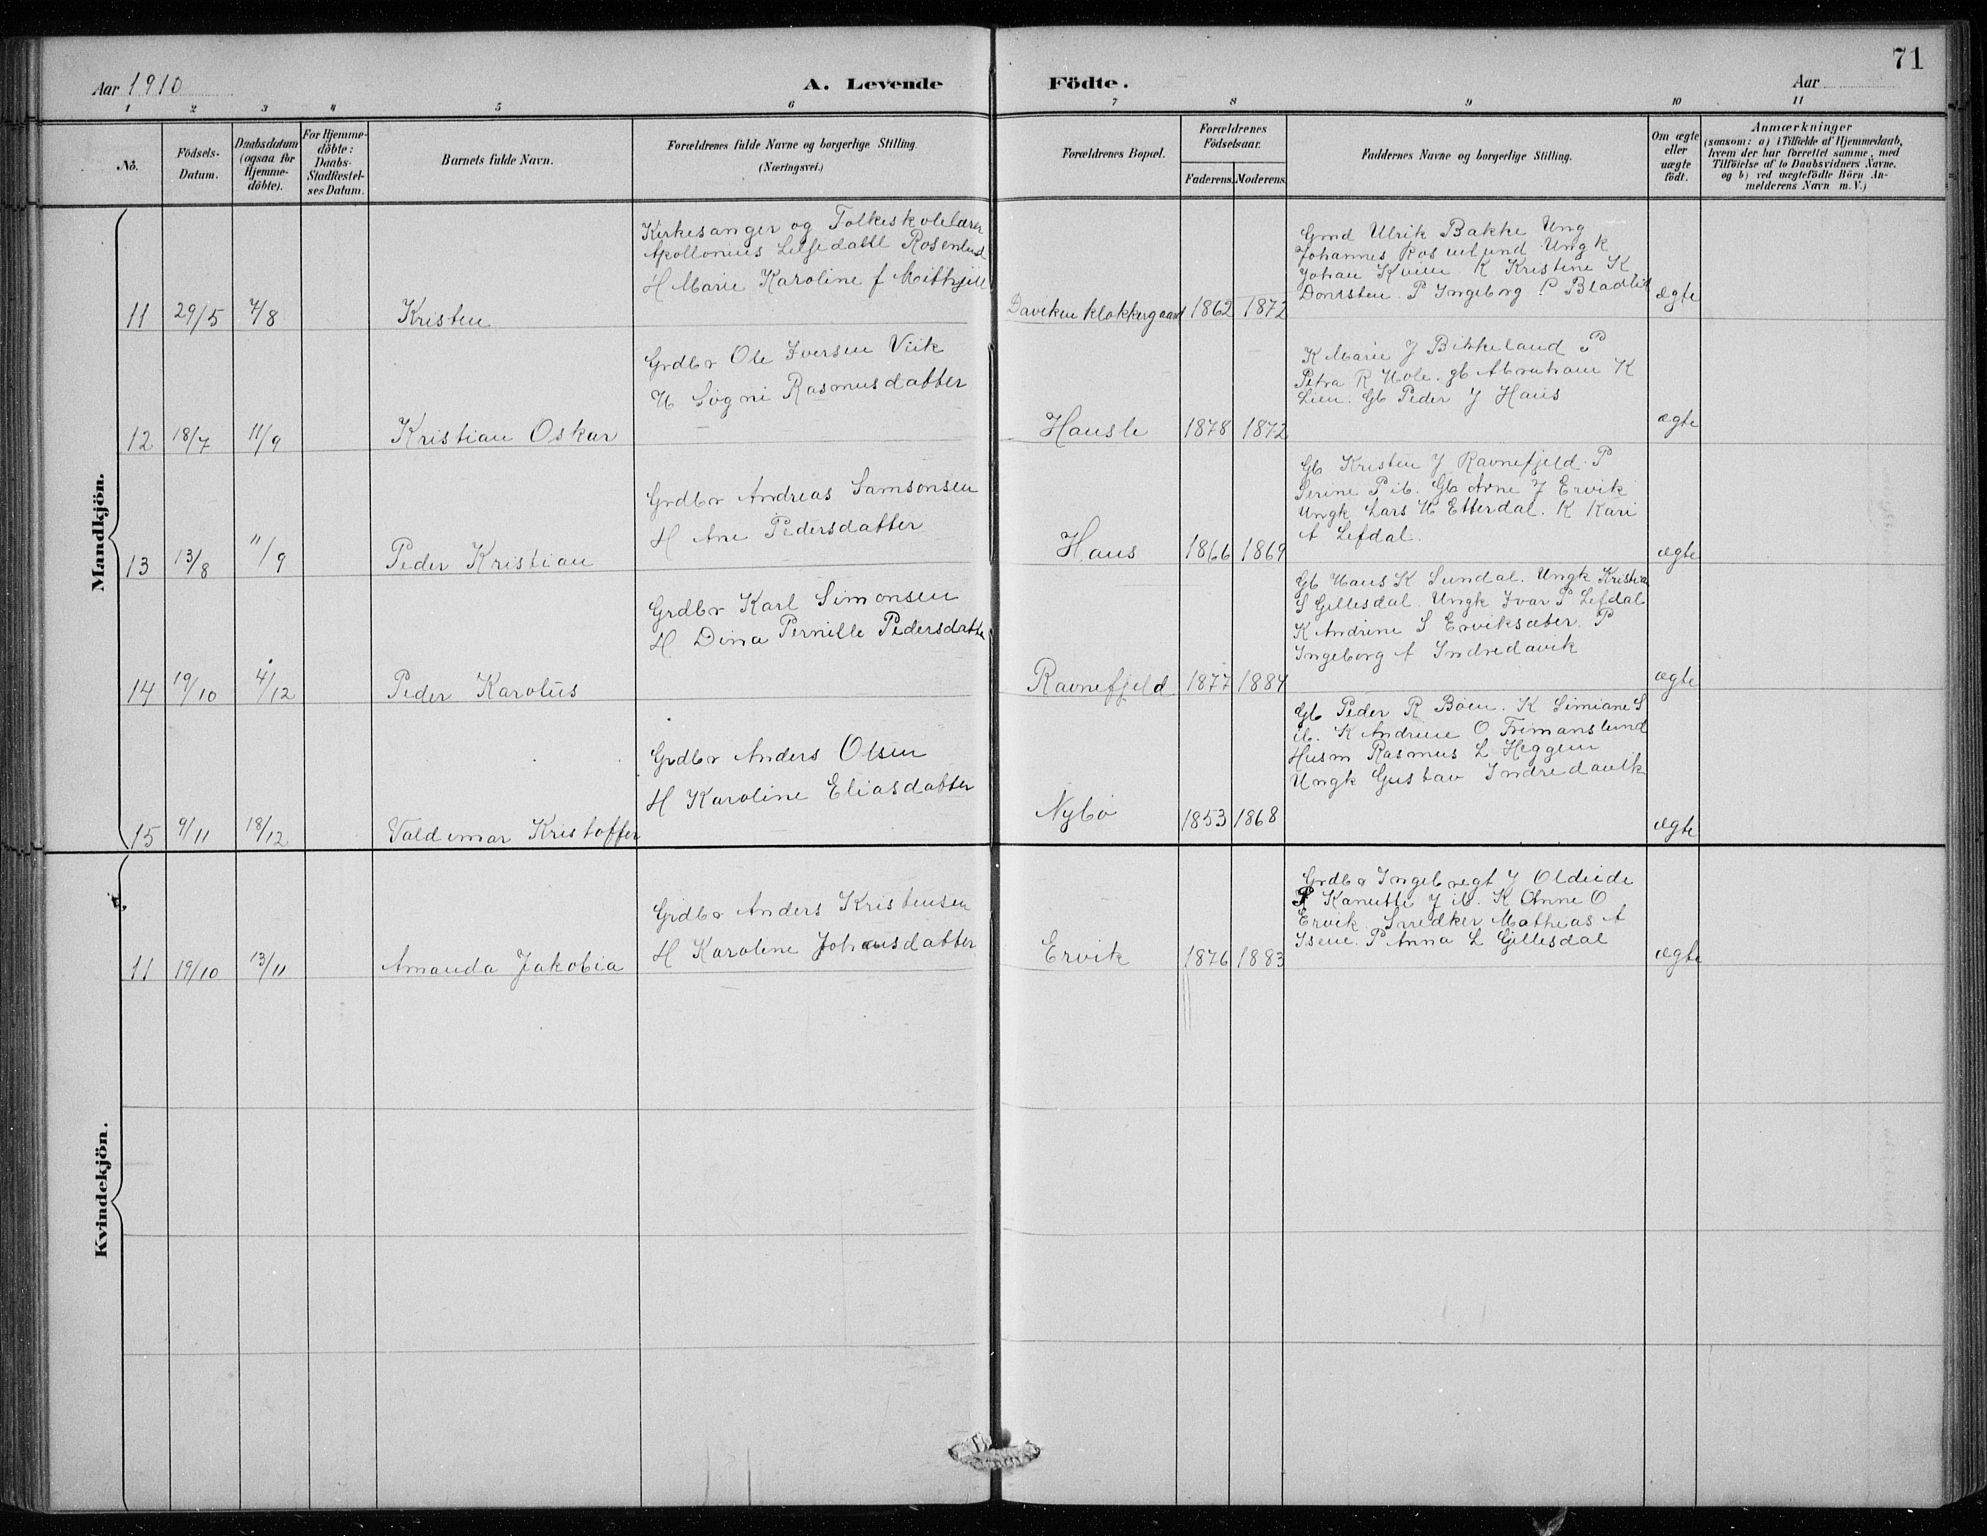 71
Aar 1910
A. Levende Födte.
Aar
1 2 3 4 5 6 7 8 9 10 11
No.
Födsels-
Datum.
Daabsdatum
(ogsaa for
Hjemme-
döbte).
For Hjemme-
döbte:
Daabs-
Stadfæstel-
ses Datum.
Barnets fulde Navn.
Forældrenes fulde Navne og borgerlige Stilling.
(Næringsvei.)
Forældrenes Bopæl.
Forældrenes
Födselsaar.
Faderens. Moderens.
Faddernes Navne og borgerlige Stilling.
Om ægte
eller
uægte
født.
Anmærkninger
(saasom: a) i Tilfælde af Hjemmedaab,
hvem der har forrettet samme, med
Tilföielse af to Daabsvidners Navne.
og b) ved uægtefödte Börn An-
melderens Navn m. V.)
Mandkjön.
Kirkesanger og Folkeskolelærer
Apollonius Rosenlund
H Marie Karoline f
11 29/5 7/8 Kristen
Daviken klokkergaard 1862 1872
Gmd Ulrik Bakke Ung
Johannes Rosenlund Ungk
Johan K Kristine K
P Ingeborg
ægte
Grdbr Ole Iversen Viik
H Søgni Rasmusdatter
12 18/7 11/9 Kristian Oskar
Hausle 1878 1872
K Marie J Birkeland P
Petra R Hole. gb Abraham K
Lien. Gb Peder J Haus
ægte
Grdbr Andreas Samsonsen
H Ane Pedersdatter
13 13/8 11/9 Peder Kristian
Haus 1866 1869
Gb Kristen J Ravnefjeld. P
Serine P ib. Gb Arne J Ervik
Ungk Lars H Etterdal. K Kari
A Lefdal.
ægte
Grdbr Karl Simonsen
H Dina Pernille Pedersdatte
14 19/10 4/12 Peder Karolus
Ravnefjeld 1877 1884
Gb Hans K Sundal. Ungk Kristia
S Gillesdal. Ungk Ivar P Lefdal
K Andrine S Erviksæter. P
Ingeborg A Indredavik
ægte
Grdbr Anders Olsen
H Karoline Eliasdatter
15 9/11 18/12 Valdemar Kristoffer
Nybø 1853 1868
Gb Peder R Böen. K Simiane S
ib. K Andrine O Frimanslund
Husm Rasmus L Heggen
Ungk Gustav Indredavik
ægte
Kvindekjön.
Grdbr Anders Kristensen
H Karoline Johansdatter
11 19/10 13/11 Amanda Jakobia
Ervik 1876 1883
Grdbr Ingebregt J Oldeide
P Kanutte J ib. K Anne O
Ervik. Snedker Mathias A
Isene. P Anna L Gillesdal
ægte